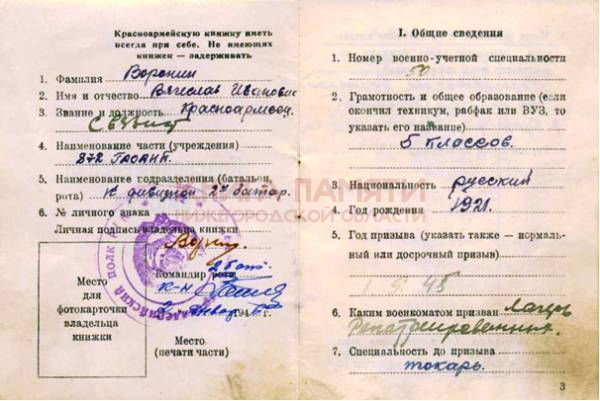 Красноармейскую книжку иметь
всегда при себе. Не имеющих
книжек — задерживать
1. Фамилия Воронин
2. Имя и отчество Вячеслав Иванович
3. Звание и должность Красноармеец
4. Наименование части (учреждения)
872 ГАОАНП.
5. Наименование подразделения (батальон,
рота) дивизион 2я батар.
6. № личного знака
Личная подпись владельца книжки
Командир роты
194 г.
Место
для
фотокарточки
владельца
книжки
Место
(печати части)
I. Общие сведения
1. Номер военно-учетной специальности
50
2. Грамотность и общее образование (если
окончил техникум, рабфак или ВУЗ, то
указать его название)
5 классов.
3. Национальность русский
4. Год рождения 1921.
5. Год призыва (указать также — нормаль-
ный или досрочный призыв)
45
6. Каким военкоматом призван Лагерь
Репатриированных.
7. Специальность до призыва
токарь.
3
КНИГА ПАМЯТИ
НИЖЕГОРОДСКОЙ ОБЛАСТИ